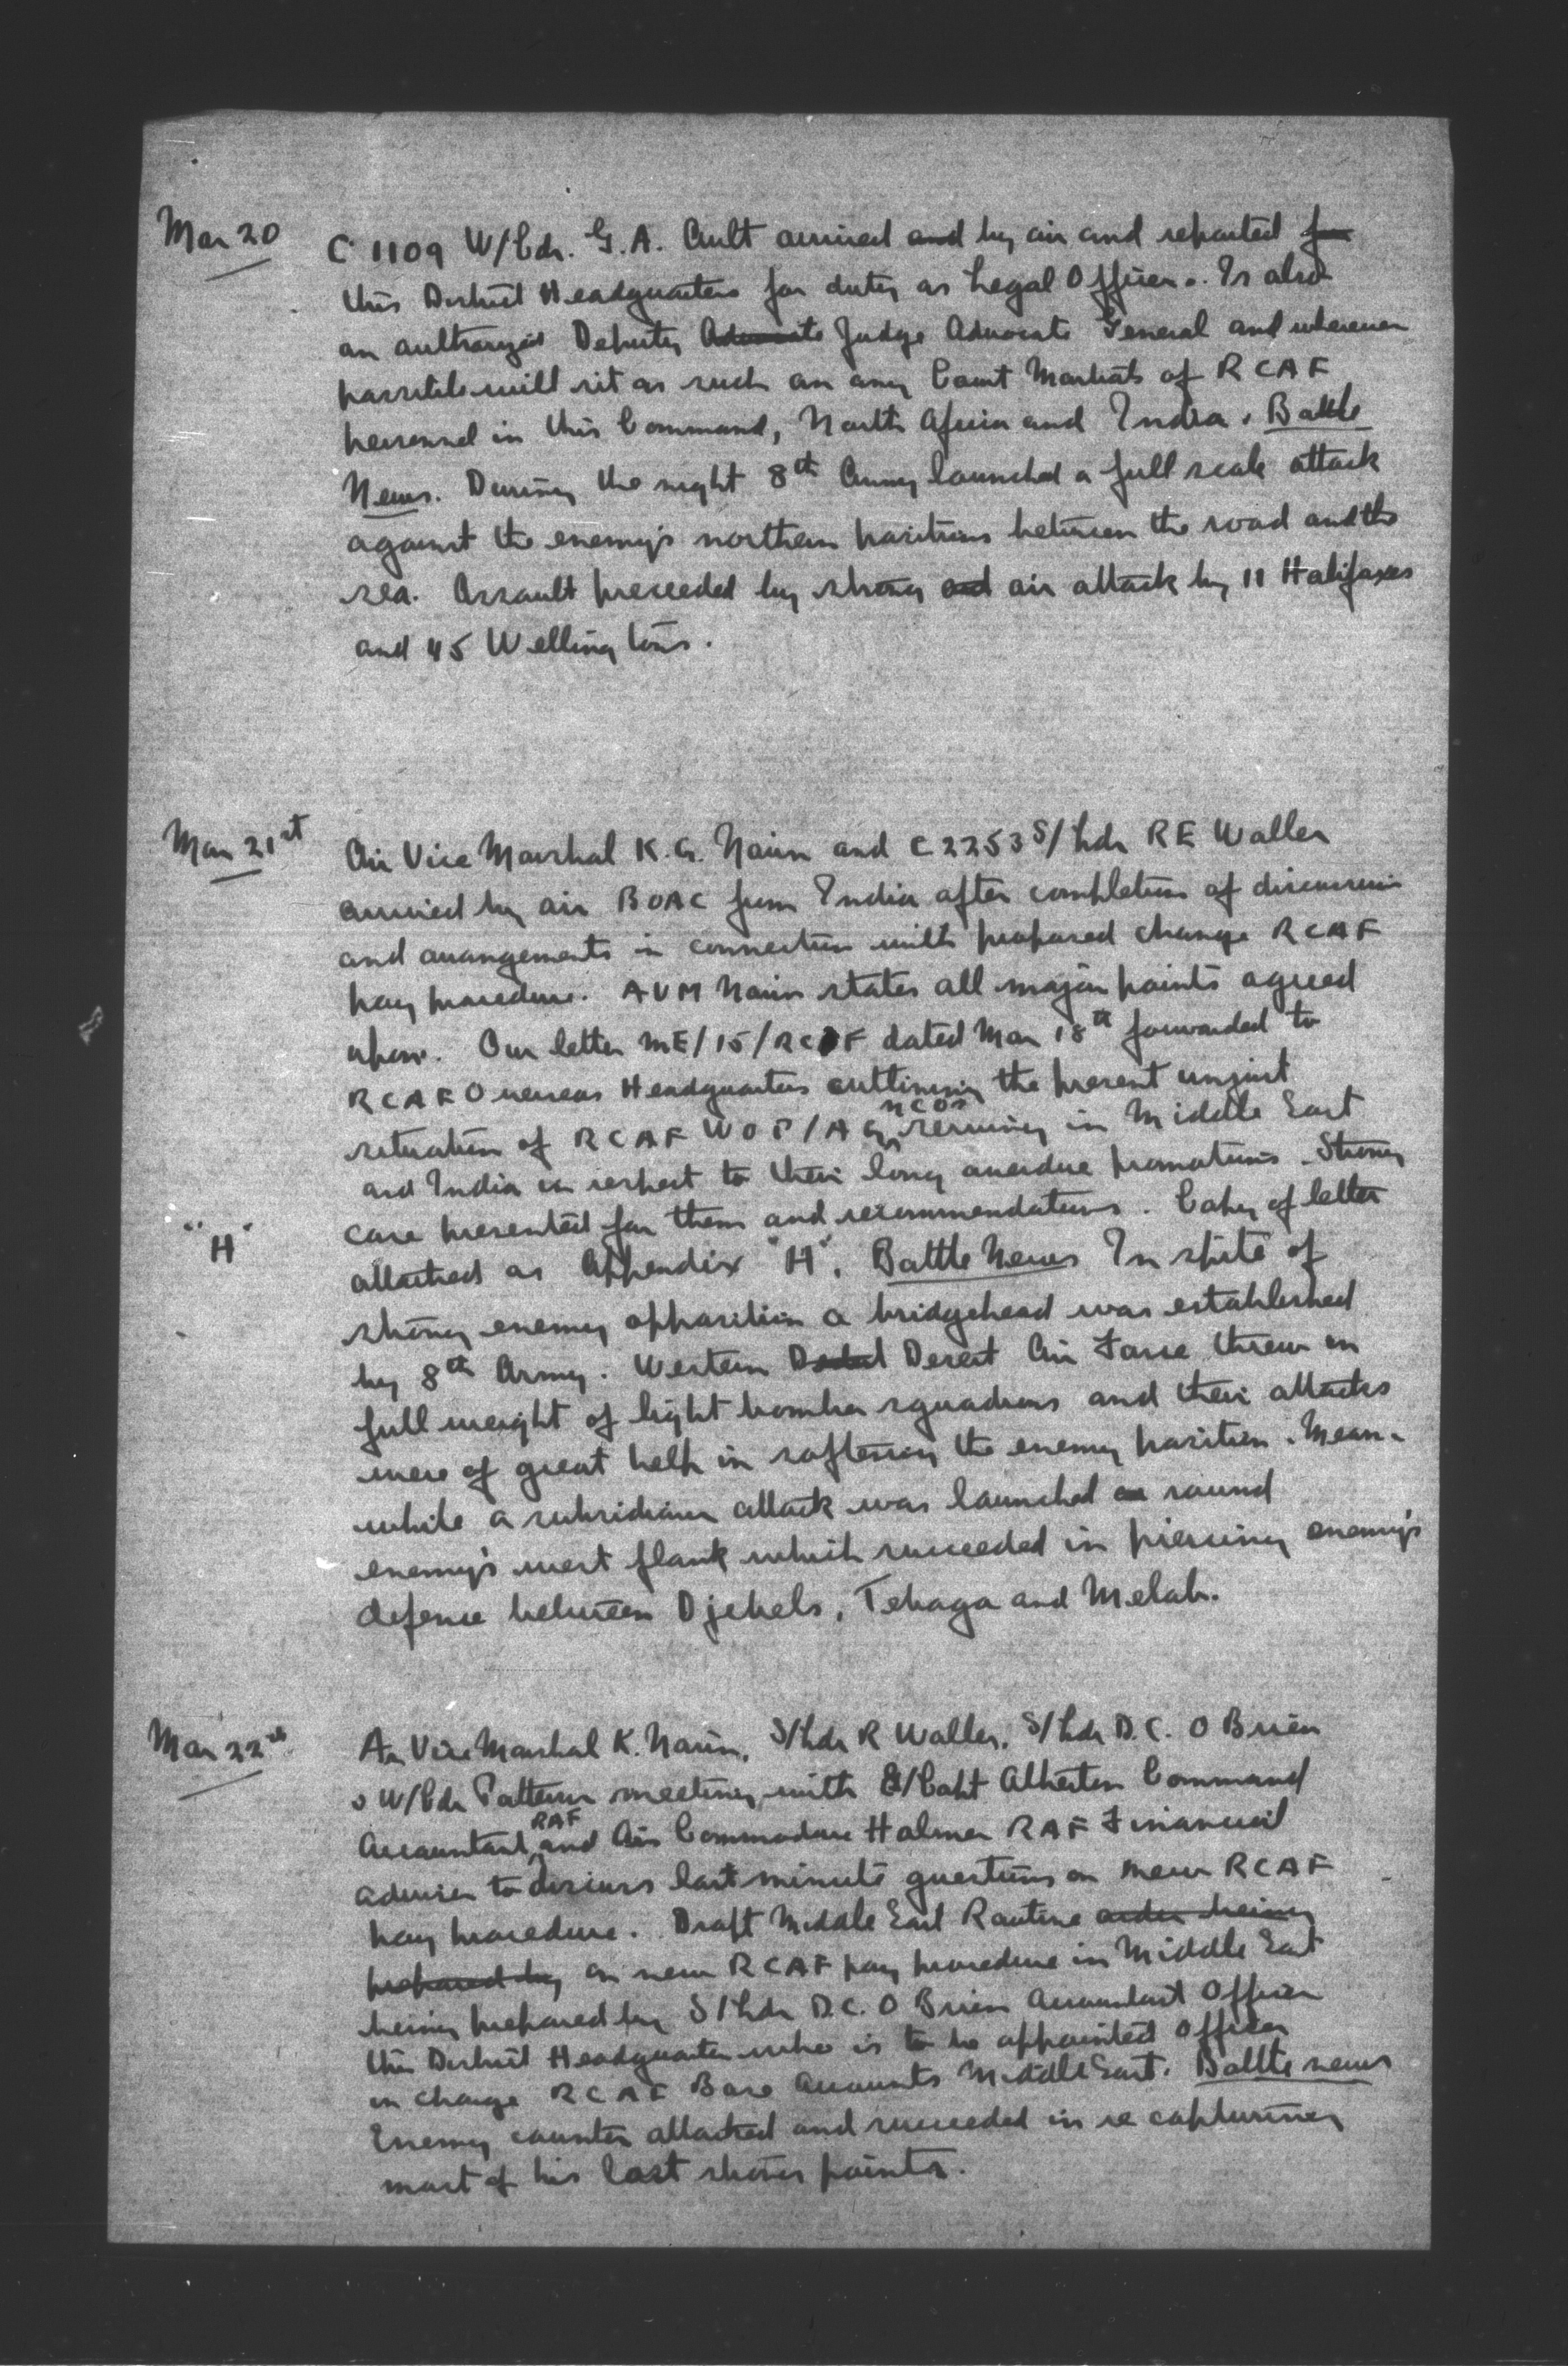 Mar 20
C 1109 W/Cdr. G.A. Ault arrived and by air and reported for
this District Headquarters for duty as Legal Officer. Is also
an authorized Deputy Advocate Judge Advocate General and whenever
possible will sit as such on any Court Martials of RCAF
personnel in this Command, North Africa and India. Battle
News. During the night 8th Army launched a full scale attack
against the enemy's northern positions between the road and the
sea. Assault preceeded by strong and air attack by 11 Halifaxes
and 45 Wellingtons.
Mar 21st
Air Vice Marshal K.G. Nairn and C2253 S/Ldr RE Waller
arrived by air BOAC from India after completion of discussion
and arrangements in connection with proposed change RCAF
pay procedure. AVM Nairn states all major points agreed
upon. Our letter ME/15/RCAF dated Mar 18th forwarded to
RCAF Overseas Headquarters outlining the present unjust
situation of RCAF WOP/AG NCOs serving in Middle East
and India in respect to their long overdue promotions. Strong
case presented for them and recommendations. Copy of letter
"H"
attached as Appendix "H". Battle News In spite of
strong enemy opposition a bridgehead was established
by 8th Army. Western Desert Air Force threw in
full weight of light bomber squadrons and their attacks
were of great help in softening the enemy position. Mean-
while a subsidiary attack was launched on round
enemy's west flank which succeeded in piercing enemy's
defence between Djebels, Tebaga and Melab.
Mar 22nd
Air Vice Marshal K. Nairn, S/Ldr R Waller, S/Ldr D.C. O Brien
W/Cdr Patterson meeting with G/Capt Atherton Command
Accountant RAF and Air Commodore Holmer RAF Financial
adviser to discuss last minute questions on new RCAF
pay procedure. Draft Middle East Routine order being
prepared by on new RCAF pay procedure in Middle East
being prepared by S/Ldr D.C. O Brien Accountant Officer
this District Headquarters who is to be appointed Officer
in charge RCAF Base Accounts Middle East. Battle news
Enemy counter attacked and succeeded in re capturing
most of his lost strong points.